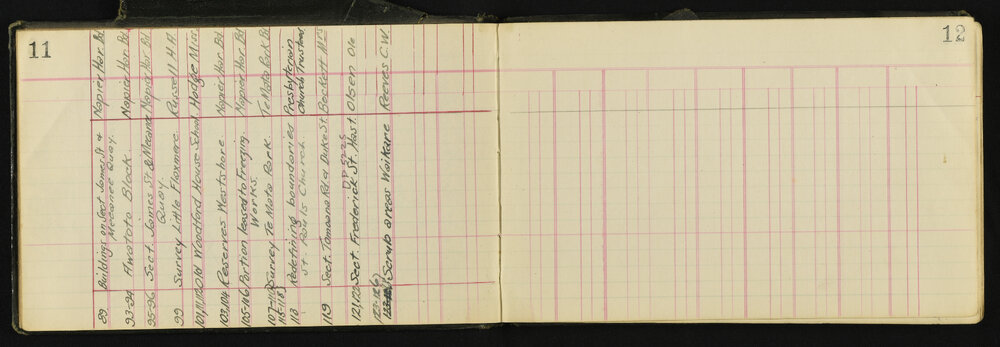 11
12
89 Buildings on Sect James St & Napier Har. Bd
Meeanee Quay.
93-94 Awatoto Block. Napier Har. Bd
95-96 Sect. James St & Meeanee Napier Har Bd
Quay.
99 Survey Little Flaxmere Russell H A
Old Woodford House School Hodge Miss.
103,104 Reserves Westshore Napier Har. Bd
105-116 Portion leased to Freezing Napier Har. Bd
Works.
107-110 Survey Te Mata Park. Te Mata Park Bd
115-118
118 Redefining boundaries Presbyterian
St. Pauls Church. Church Trustees
119 Sect. Tomoana Rd & Duke St. Beckett Mrs
DP 5225
121,122 Sect. Frederick St. Hast. Olsen Ole
123-126 Scrub areas Waikare Reeves C.W.